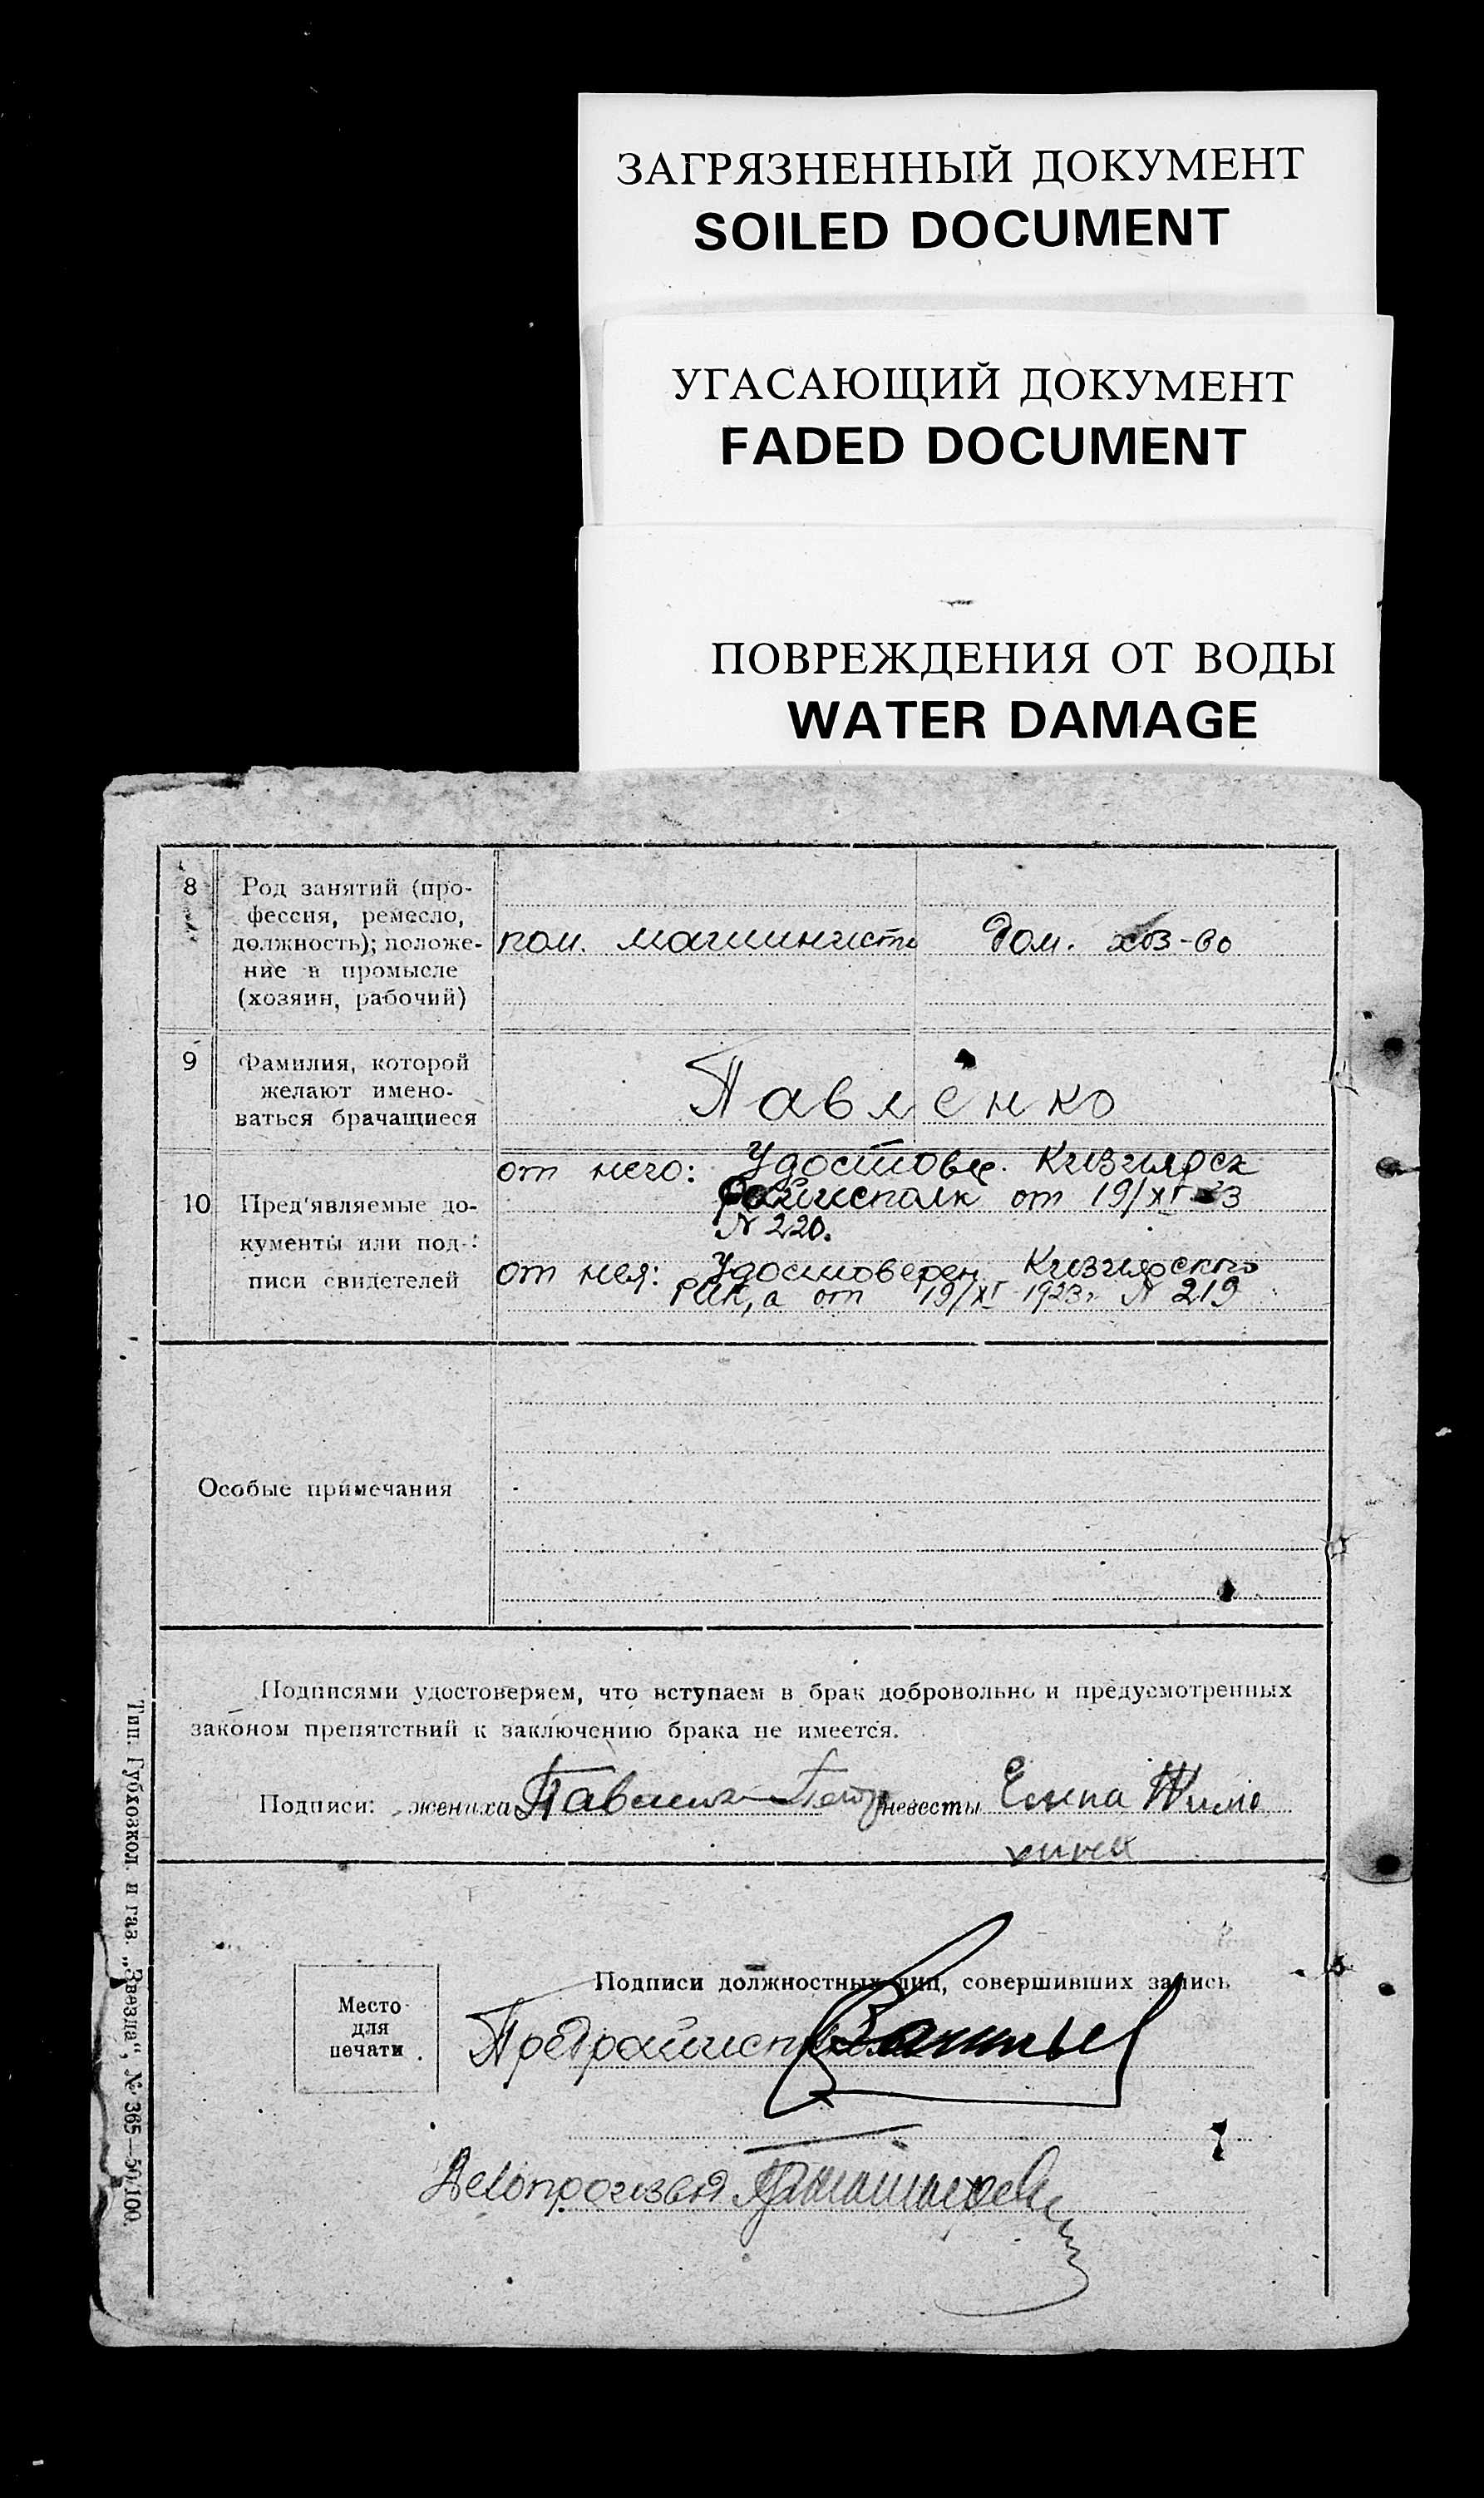 ЗАГРЯЗНЕННЫЙ ДОКУМЕНТ
SOILED DOCUMENT
УГАСАЮЩИЙ ДОКУМЕНТ
FADED DOCUMENT
ПОВРЕЖДЕНИЯ ОТ ВОДЫ
WATER DAMAGE
8
Род занятий (про-
фессия, ремесло,
должность); положе-
ние в промысле
(хозяин, рабочий)
пом. машиниста
Дом. хоз-во
9
Фамилия, которой
желают имено-
ваться брачащиеся
Павленко
10
Пред'являемые до-
кументы или под-
писи свидетелей
от него: Удостовер. Кизиярск
райисполк от 19/XI 23
N 220.
от нея: Удостоверен Кизиярского
РИК,а от 19/XI 1923г N 219
Особые примечания
Подписями удостоверяем, что вступаем в брак добровольно и предусмотренных
законом препятствий к заключению брака не имеется.
Подписи: жениха Павленко Петр невесты Елена
Место
для
печати
Подписи должностных лиц, совершивших запись
Предрайисполкома
Делопроизв
Тип. Губхозкол. и газ. „Звезда“, № 365—50/100.